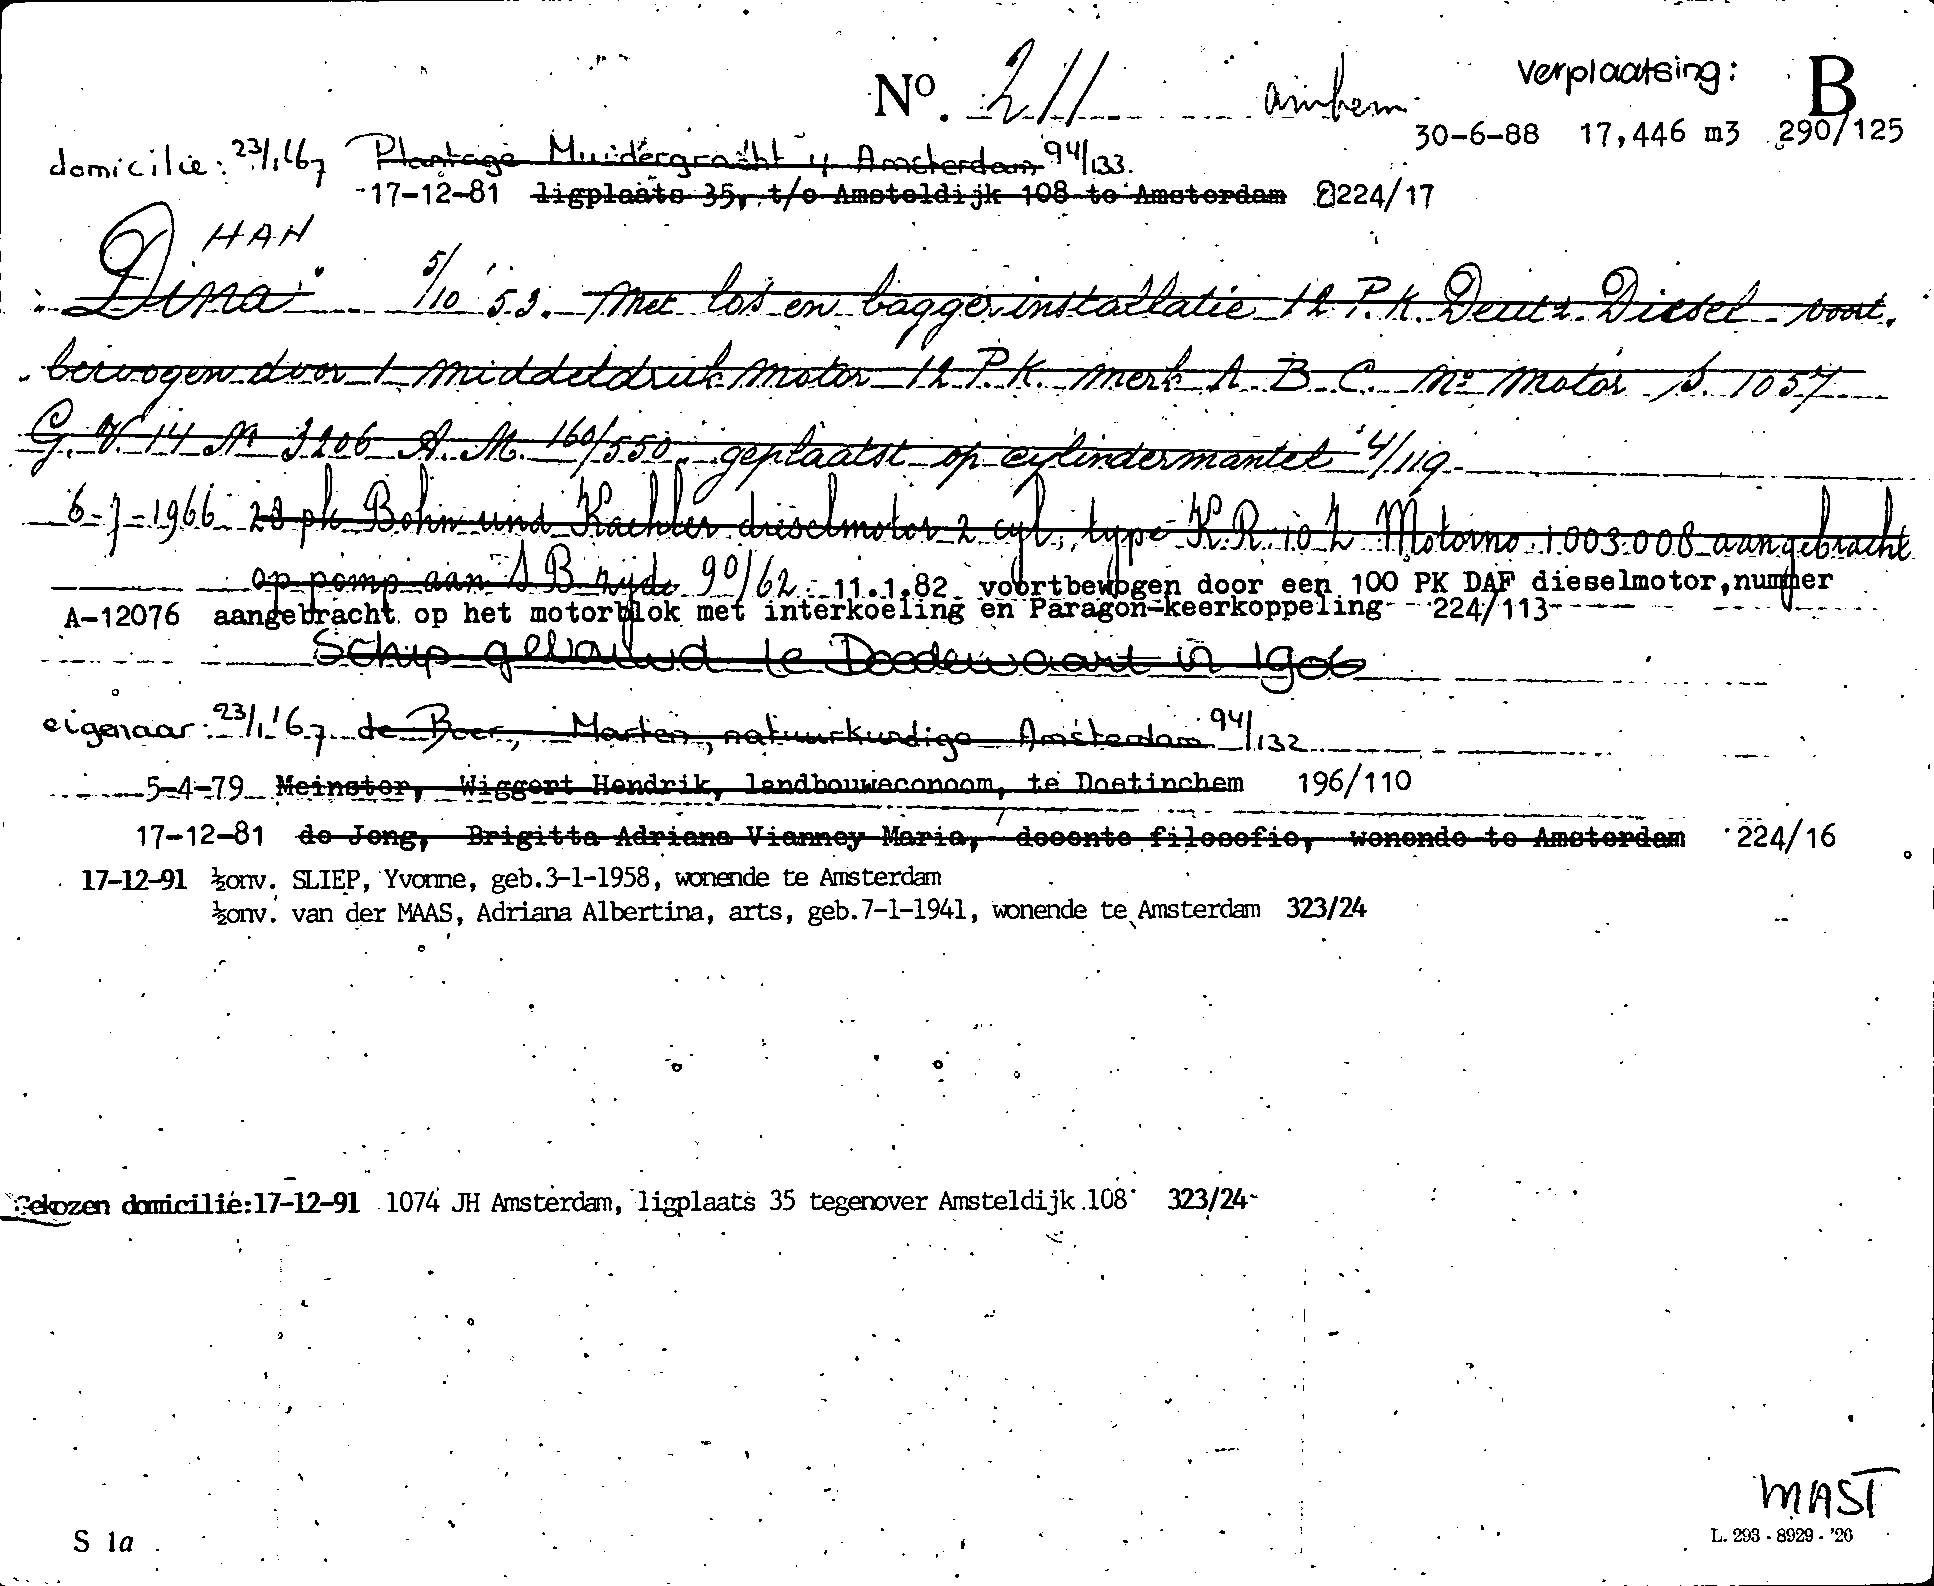 Verplaatsing: B
No. 211 Arnhem
30-6-88 17,446 m3 290/125
domicilie: 23/1'67 Plantage Muidergracht 4 Amsterdam 94/133.
17-12-81 ligplaats 35, t/o Amsteldijk 108 te Amsterdam 224/17
HAN
Dina 5/10 '53. Met los en baggerinstallatie 12 P.K. Deutz Diesel voort.
bewogen door 1 middeldruk motor 12 P.K. merk A.B.C. No motor S. 1057
G.V. 14 No 3206 A.M. 160/550. geplaatst op cylindermantel 4/119
6-7-1966 28 pk Bohn und Kaehler dieselmotor 2 cyl, type K.R. 10 Z Motorno. 1.003.008 aangebracht
op pomp aan S B zijde 90/62. 11.1.82 voortbewogen door een 100 PK DAF dieselmotor,nummer
A-12076 aangebracht op het motorblok met interkoeling en Paragon-keerkoppeling 224/113
Schip gebouwd te Doodewaart in 1906
eigenaar: 23/1'67 de Boer, Marten, natuurkundige Amsterdam 94/132
5-4-79 Meinster, Wiggert Hendrik, landbouweconoom, te Doetinchem 196/110
17-12-81 de Jong, Brigitta Adriana Vianney Maria, docente filosofie, wonende te Amsterdam 224/16
17-12-91 ½onv. SLIEP, Yvonne, geb.3-1-1958, wonende te Amsterdam
½onv. van der MAAS, Adriana Albertina, arts, geb.7-1-1941, wonende te Amsterdam 323/24
Gekozen domicilie:17-12-91 1074 JH Amsterdam, ligplaats 35 tegenover Amsteldijk 108 323/24
MAST
S 1a L. 293 - 8929 - '26